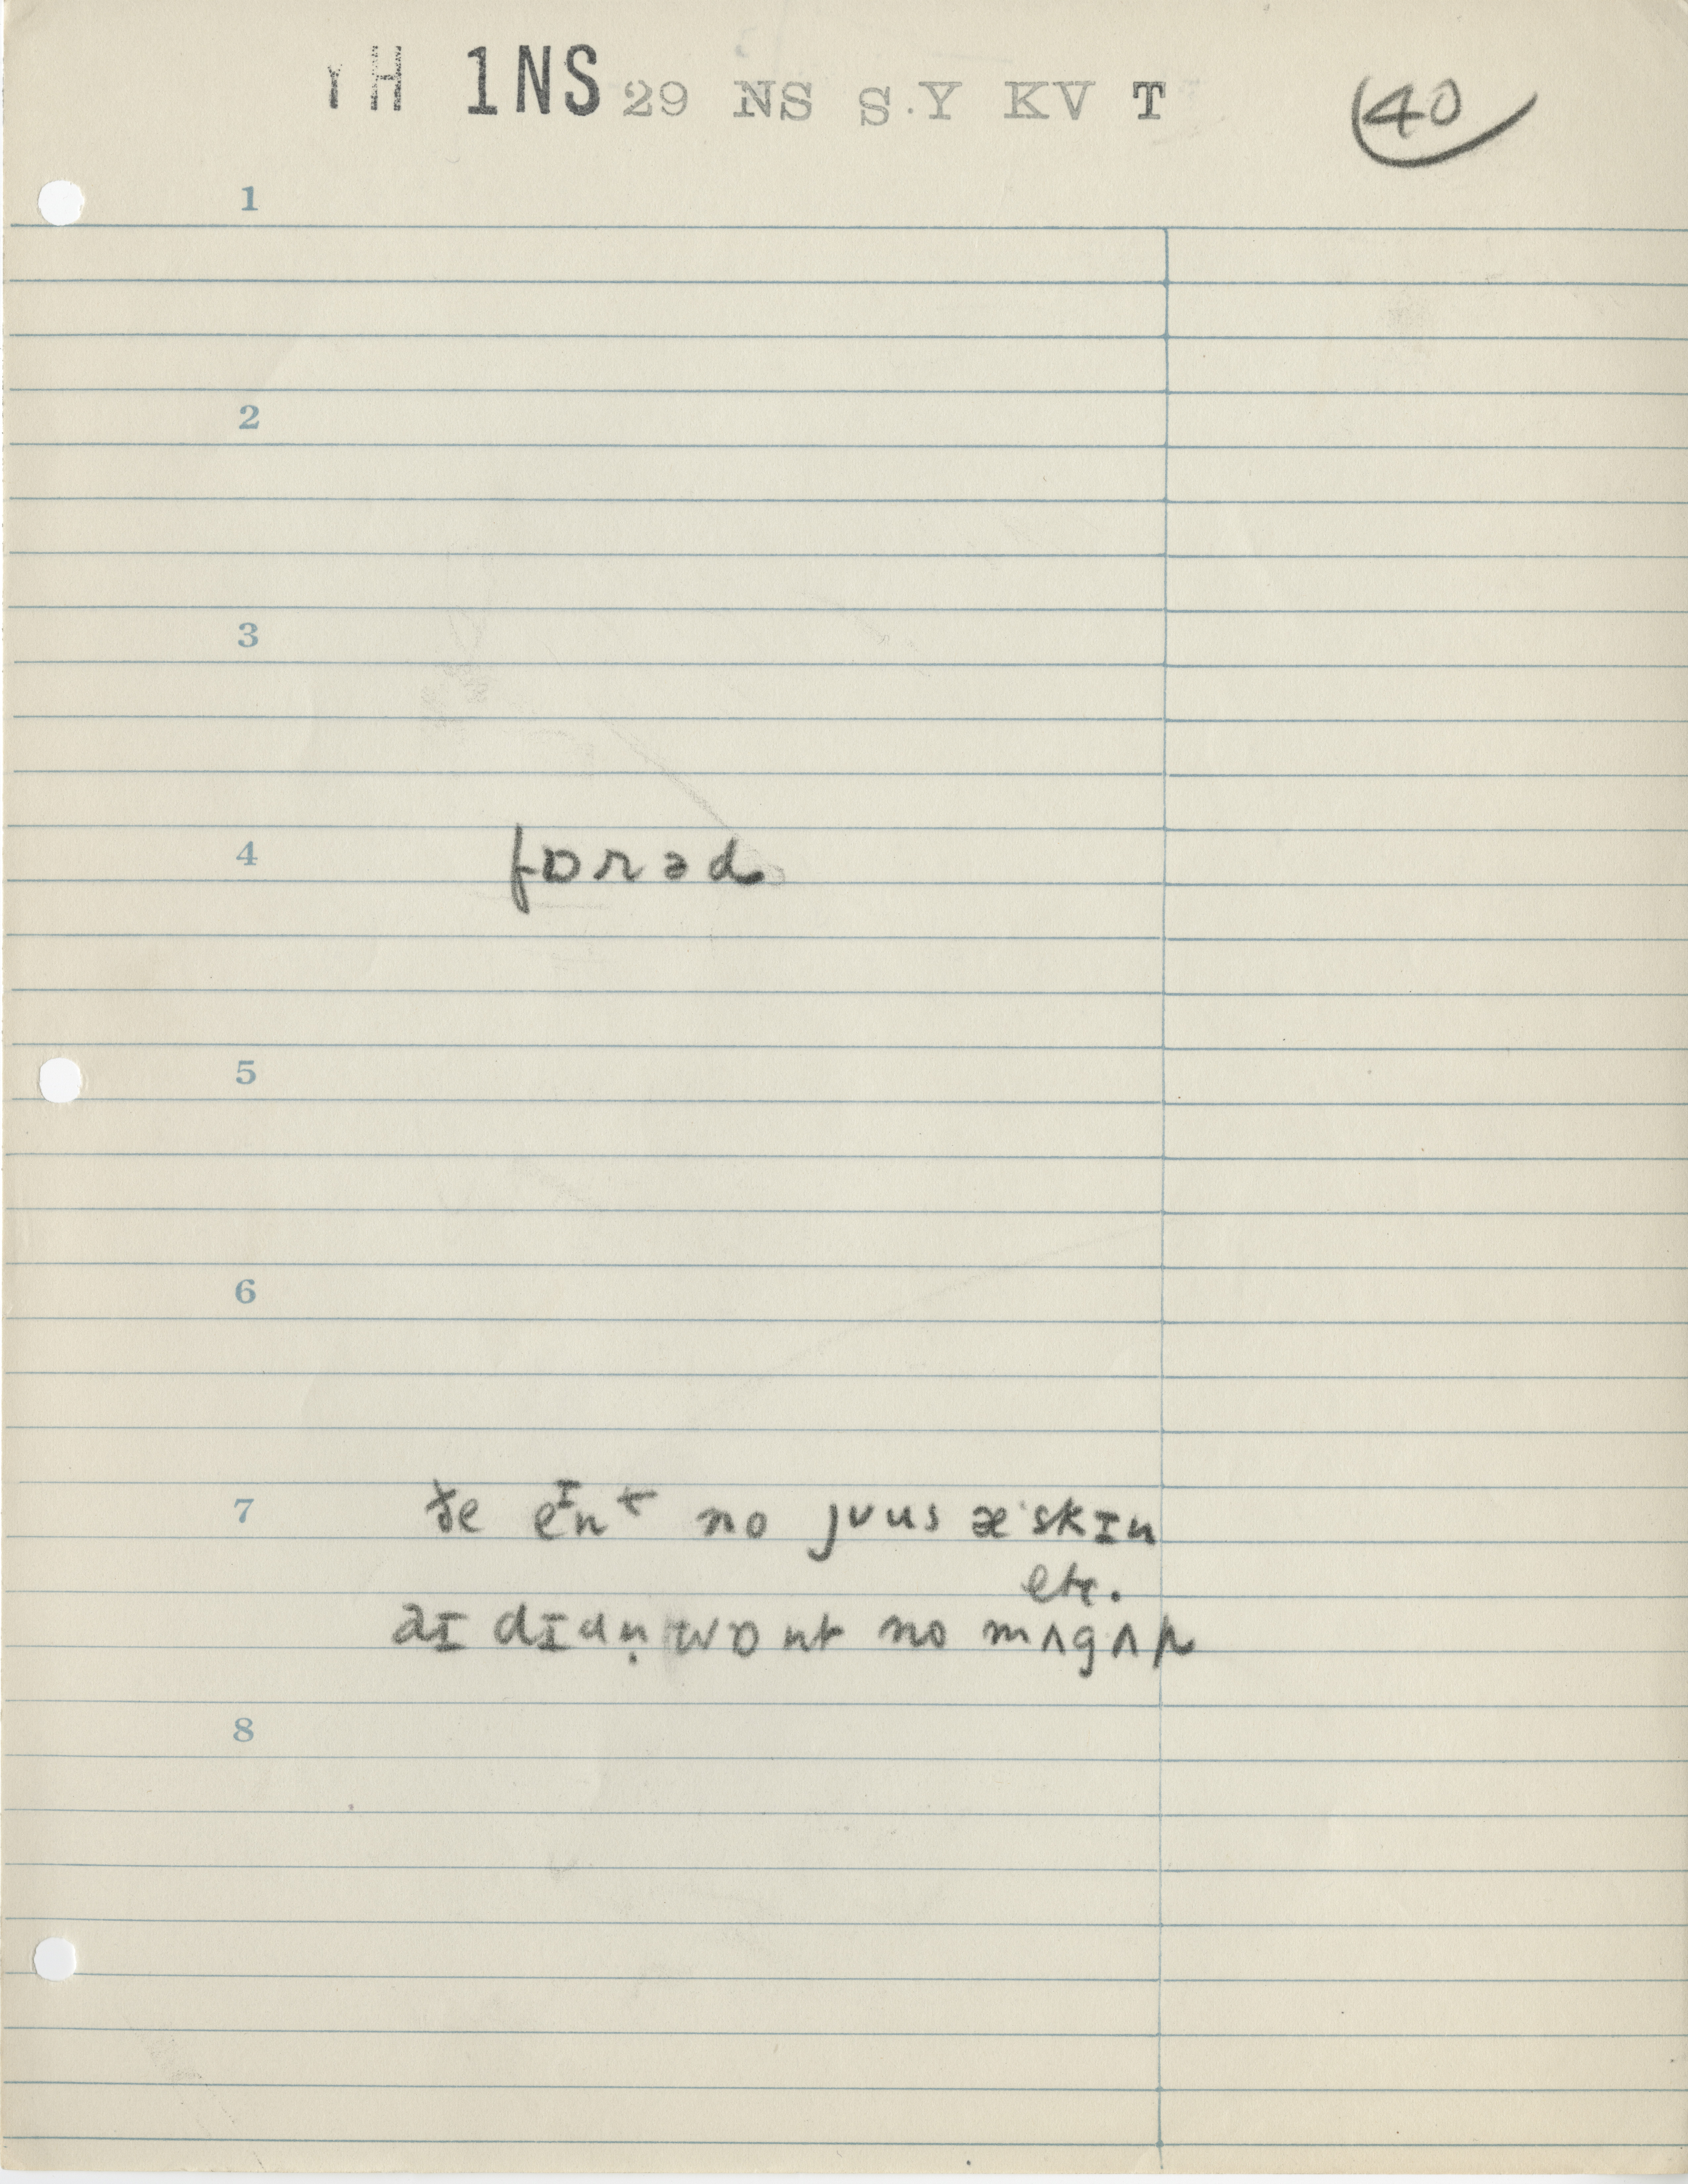 YH 1NS 29 NS S.Y KV T 40
1
2
3
4 fɒrəd
5
6
7 ðe eᴵnt no juus æskɪn
etc.
aɪ dɪdn̩ wɒnt no mʌgʌp
8